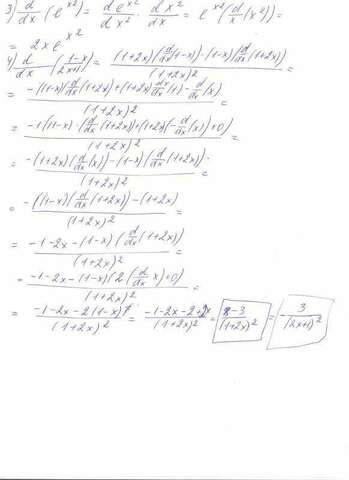 3) d/dx (e^x²) = de^x²/dx² · dx²/dx = e^x² (d/x (x²)) =
= 2xe^x²
4) d/dx ((1-x)/(2x+1)) = ((1+2x)(d/dx(1-x)) - (1-x)(d/dx(1+2x)))/(1+2x)² =
= (-(1-x)(d/dx(1+2x)) + (1+2x) d/dx (1) - d/dx (x))/(1+2x)² =
= (-1(1-x)·(d/dx(1+2x)) + (1+2x)(-d/dx(x)+0))/(1+2x)² =
= (-(1+2x)(d/dx(x)) - (1-x)(d/dx(1+2x)))/(1+2x)² =
= (-((1-x)(d/dx(1+2x)) - (1+2x))/(1+2x)² =
= (-1-2x-(1-x)(d/dx(1+2x)))/(1+2x)² =
= (-1-2x-(1-x)(2(d/dx x)+0))/(1+2x)² =
= (-1-2x-2(1-x))/(1+2x)² = (-1-2x-2+2x)/(1+2x)² = -3/(1+2x)² = -3/(2x+1)²